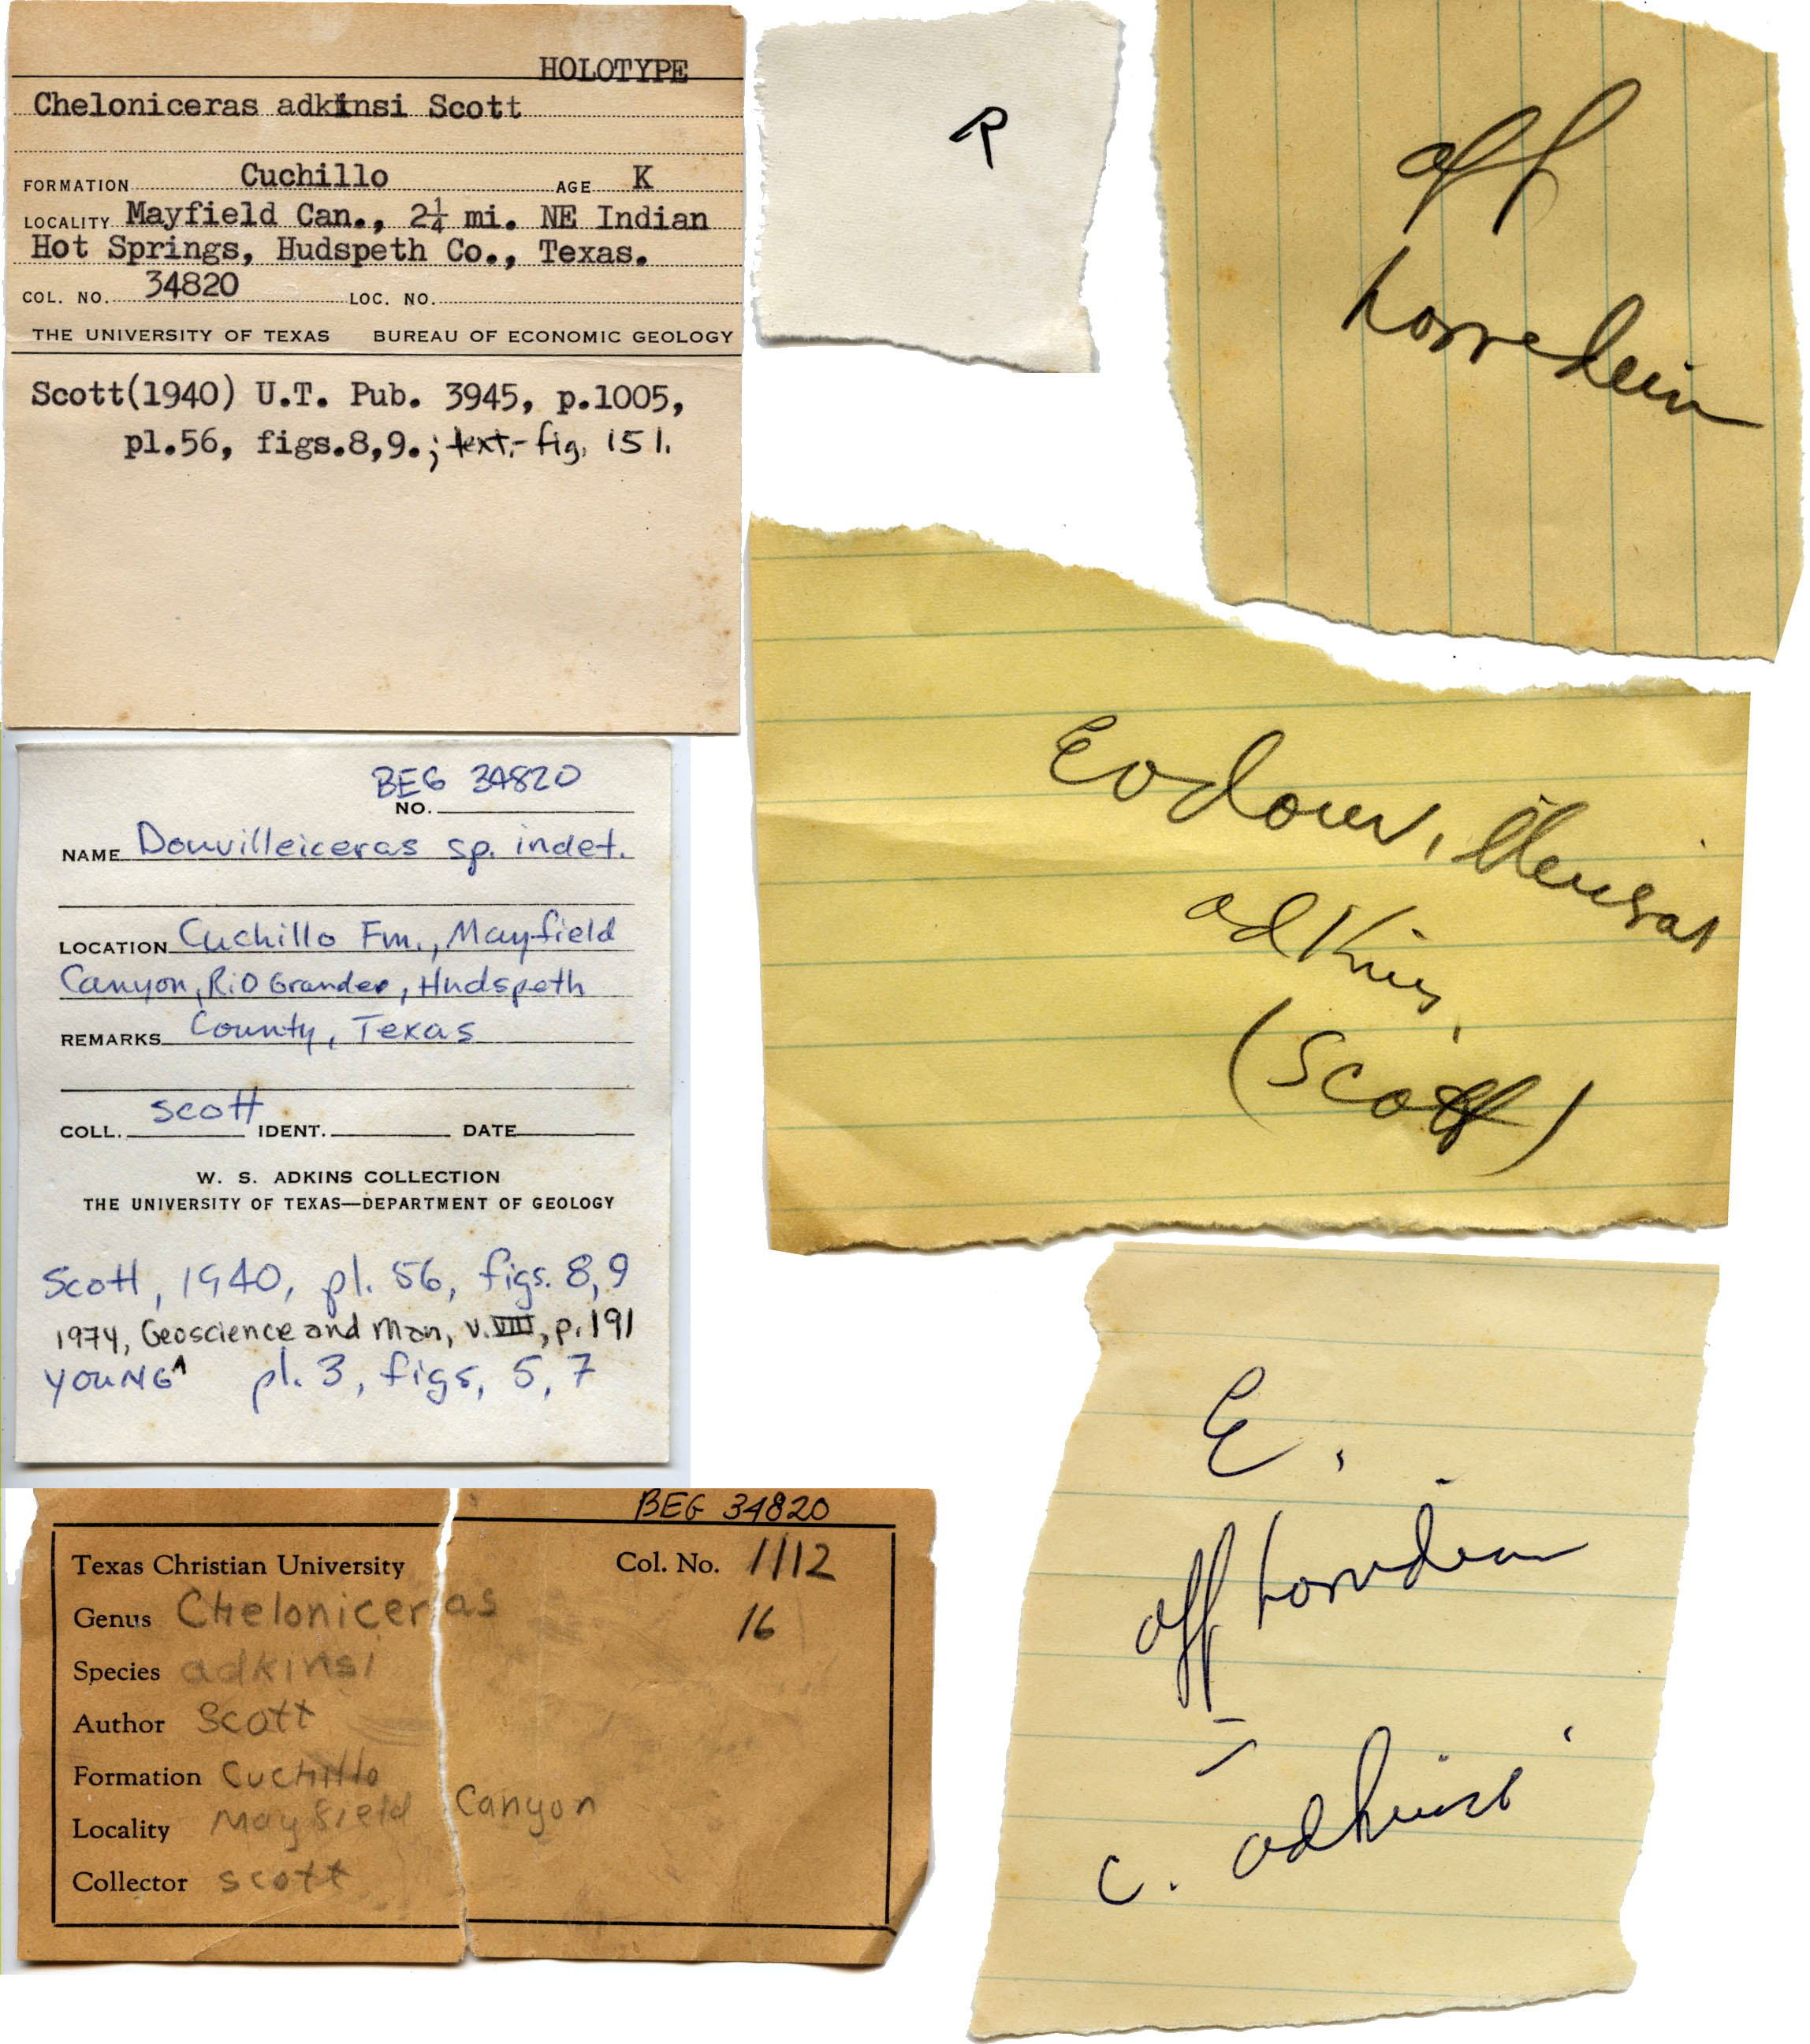 HOLOTYPE
Cheloniceras adkinsi Scott
FORMATION Cuchillo AGE K
LOCALITY Mayfield Can., 2¼ mi. NE Indian
Hot Springs, Hudspeth Co., Texas.
COL. NO. 34820 LOC. NO.
THE UNIVERSITY OF TEXAS BUREAU OF ECONOMIC GEOLOGY
Scott(1940) U.T. Pub. 3945, p.1005,
pl.56, figs.8,9.; text-fig. 151.
R
aff
BEG 34820
NO.
NAME Douvilleiceras sp. indet.
LOCATION Cuchillo Fm., Mayfield
Canyon, Rio Grande, Hudspeth
REMARKS County, Texas
COLL. Scott IDENT. DATE
W. S. ADKINS COLLECTION
THE UNIVERSITY OF TEXAS—DEPARTMENT OF GEOLOGY
Scott, 1940, pl. 56, figs. 8,9
1974, Geoscience and Man, v. VIII, p. 191
YOUNG ^ pl. 3, figs, 5, 7
adkinsi
(Scott)
BEG 34820
Texas Christian University Col. No. 1112
Genus Cheloniceras 16
Species adkinsi
Author Scott
Formation Cuchillo
Locality Mayfield Canyon
Collector Scott
E.
aff
=
C. adkinsi